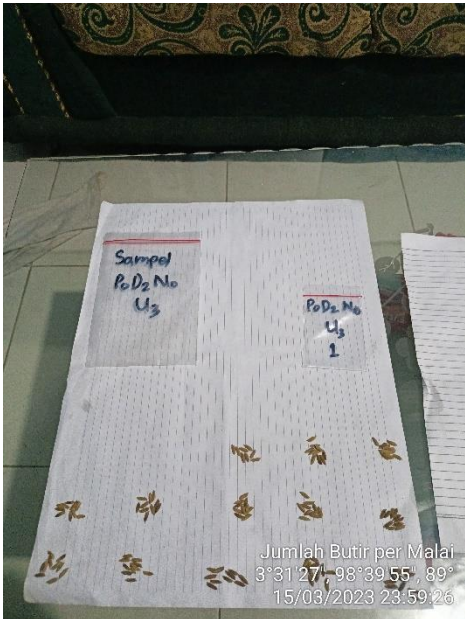 Sampel
P₀D₂N₀
U₃
P₀D₂N₀
U₃
1
Jumlah Butir per Malai
3°31'27", 98°39'55", 89°
15/03/2023 23:59:26